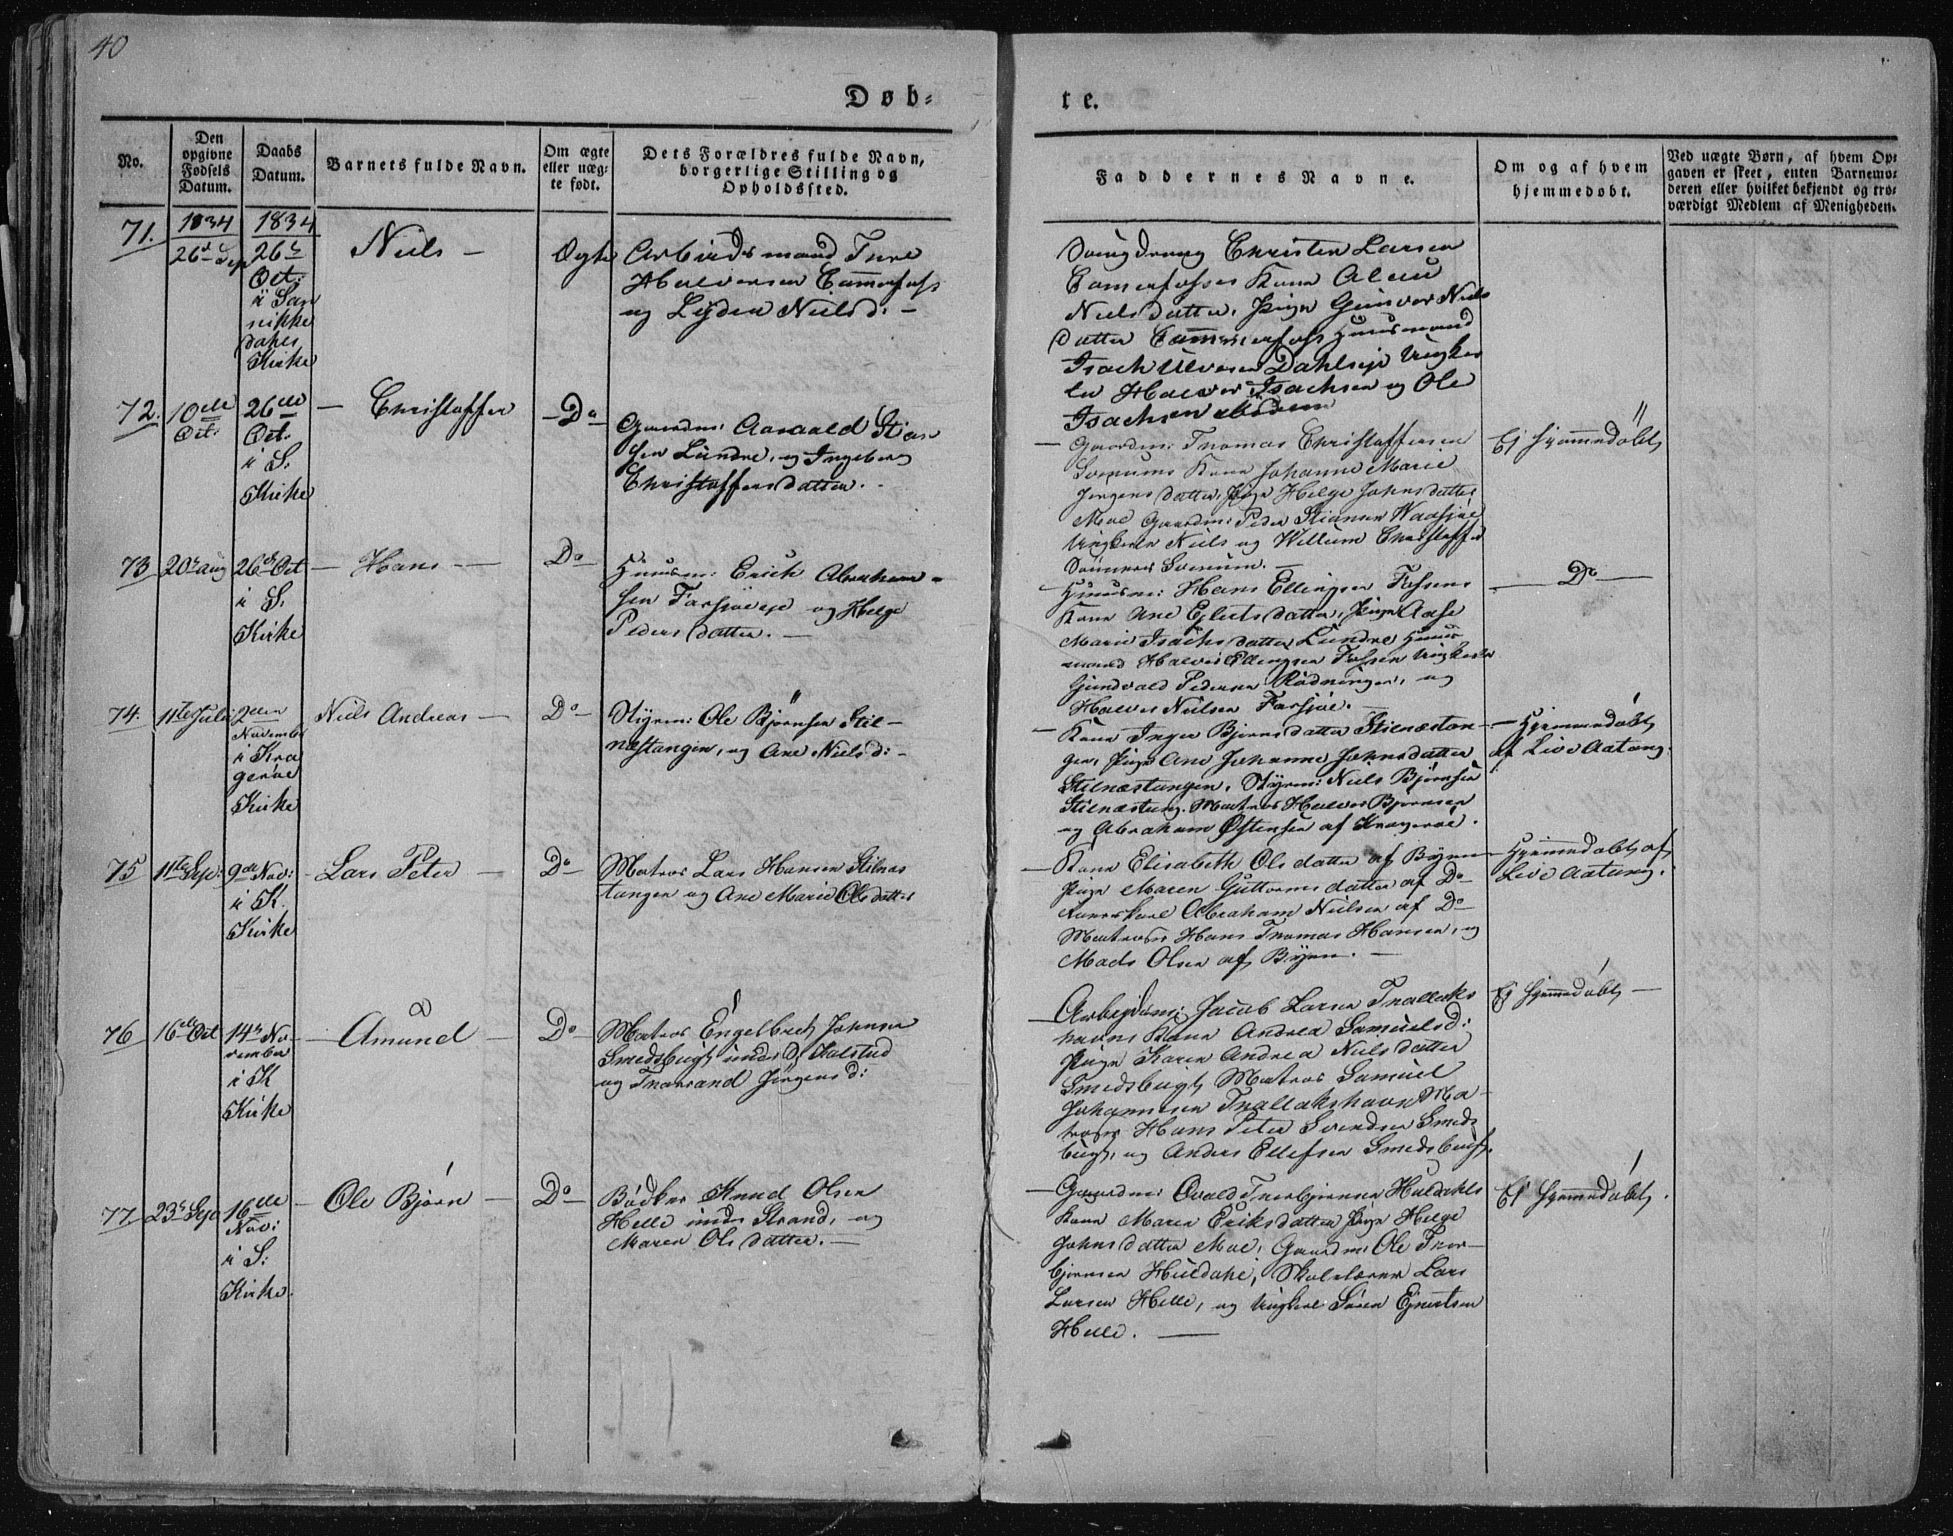 40
Døb-
te.
No.
Den opgivne Fødsels Datum.
Daabs Datum.
Barnets fulde Navn.
Om ægte eller uæg- te født.
Dets Forældres fulde Navn, borgerlige Stilling og Opholdssted.
Faddernes Navne.
Om og af hvem hjemmedøbt.
Ved uægte Børn, af hvem Op- gaven er skeet, enten Barnemo- deren eller hvilket bekjendt og tro- værdigt Medlem af Menigheden.
71.
1834
26 Sep
1834
26
Oct:
i San
nikke
dahls
Kirke
Niels -
Ægte
Arbeidsmand Ture
Halvorsen Cammerfos
og Lÿdia Nielsd: -
Christen Larsen
Camerfosses Kone
Nielsdatter, Pige Gunvor Niels
datter Cammerfos Huusmand
Isach Dahlseje Ungkar
le Halvor Isachsen og Ole
Isachsen ibidem
72.
10de
Oct:
26de
Oct:
i S:
Kirke
- Christoffer
- Do -
Gaardm: Aanvald Stian
sen Lundre, og Ingeborg
Christoffersdatter.
- Gaardm: Thomas Christoffersen
Kone Johanne Marie
Jørgensdatter, Pige Helge Johnsdatter
Moe Gaardm: Peder Stiansen
Ungkarle Niels og Willum Christoffer
Sønner
Ej hjemmedøbt
73
20 aug
26 Oct
i S.
Kirke
- Hans -
Do
Huusm: Erich Abraham-
sen Farsjøeje og Helge
Pedersdatter. -
- Huusm: Hans Ellingsen Fossens
Kone Ane Datter, Pige Aase
Marie Isachsdatter Lundre, Huus
mand Halvor Ellingsen Fossen Ungkarle
Gundvald Pedersen Rødningen, og
Halvor Nielsen Farsjøe. -
- Do -
74.
11te Juli
2den
November
i Kra
gerøe
Kirke
Niels Andreas -
Do -
Styrm: Ole Bjørnsen Stil-
næstangen, og Ane Nielsd: -
- Kone Inger Bjørnsdatter Stilnæstan-
gen, Pige Ane Johanne Johnsdatter
Stilnæstangen, Styrm: Niels Bjørnsen
Stilnæstang. Matros Halvor Bjørnsen
og Abraham Østensen af Kragerøe.
- Hjemmedøbt
af Live Aatang.
75
11te Sep:
9de Nov:
i K.
Kirke
- Lars Peter -
Do
Matros Lars Hansen Stilnæs
tangen og Ane Marie Olsdatter
- Kone Elisabeth Olsdatter af Byen
Pige Maren Guttormsdatter af Do
Ungkarl Abraham Nielsen af Do
Matroser Hans Thomas Hansen, og
Mads Olsen af Byen. -
- Hjemmedøbt af
Live Aatang.
76
16de Oct
14 No-
vember
i K
Kirke
- Amund -
Do -
Matros Engelbret Johnsen
Smedsbugt under Kalstad
og Thorand Jørgensd:
- Arbeidsm: Jacob Larsen Trallaks
havns Kone Andrea Samuelsd:
Pige Karen Andrea Nielsdatter
Smedsbugt, Matros Samuel
Johannesen Trallakshavn Ma-
troser Hans Peter Svendsen Smeds
bugt, og Anders Ellefsen Smedsbugt.
Ej hjemmedøbt -
77
23 Sep
16de
Nov:
i S:
Kirke.
- Ole Bjørn -
Do -
Bødker Knud Olsen
Helle under Strand, og
Maren Olsdatter. -
- Gaardm: Thorbjørnsen Huldahls
Kone Maren Eriksdatter Pige Helge
Johnsdatter Moe, Gaardm: Ole Thor-
bjørnsen Huldahl, Skolelærer Lars
Larsen Helle, og Ungkarl Søren Ejvertsen
Helle. -
Ej hjemmedøbt.